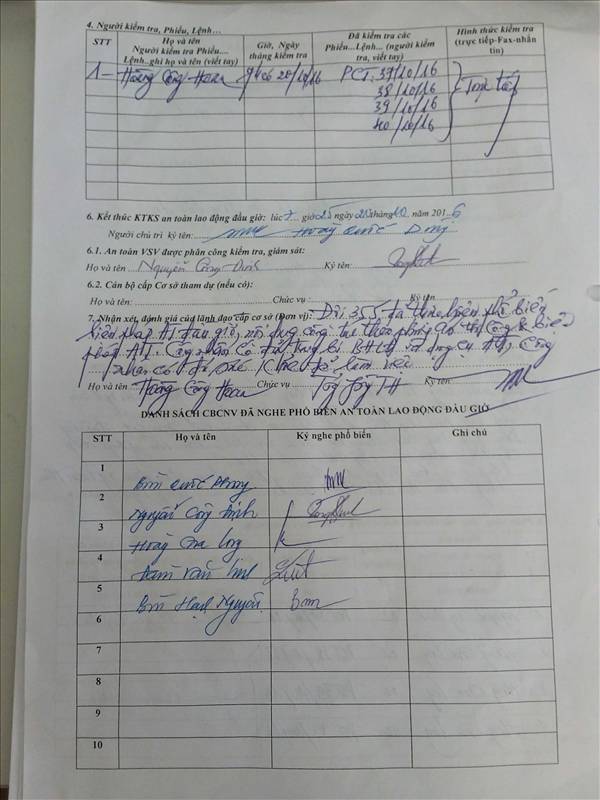 4. Người kiểm tra, Phiếu, Lệnh…
STT
Họ và tên
Người kiểm tra Phiếu....
Lệnh..ghi họ và tên (viết tay)
Giờ, Ngày
tháng kiểm tra
Đã kiểm tra các
Phiếu...Lệnh... (người kiểm
tra, viết tay)
Hình thức kiểm tra
(trực tiếp-Fax-nhắn
tin)
1- Hoàng Công Hoan 20/10/16 PCT: 37/10/16
38/10/16
39/10/16
40/10/16
6. Kết thúc KTKS an toàn lao động đầu giờ: lúc 7 giờ 25 ngày 20 tháng 10 năm 2016
Người chủ trì ký tên:
6.1. An toàn VSV được phân công kiểm tra, giám sát:
Họ và tên Nguyễn Công Định Ký tên:
6.2. Cán bộ cấp Cơ sở tham dự (nếu có):
Họ và tên: Chức vụ : Ký tên
7. Nhận xét, đánh giá của lãnh đạo cấp cơ sở (Đơn vị): Đội 355 đã thực hiện phổ biến
biện pháp AT đầu giờ, nội dung công tác theo phương án thi công & biện
pháp AT. Công nhân có đủ trang bị BHLĐ và dụng cụ AT, Công
nhân có đủ sức khỏe để làm việc
Họ và tên Hoàng Công Hoan Chức vụ Ký tên
DANH SÁCH CBCNV ĐÃ NGHE PHỔ BIẾN AN TOÀN LAO ĐỘNG ĐẦU GIỜ
STT Họ và tên Ký nghe phổ biến Ghi chú
1 Bùi Quốc
2 Nguyễn Công Định
3 Hoàng
4 Văn
5 Bùi Nguyên
6
7
8
9
10